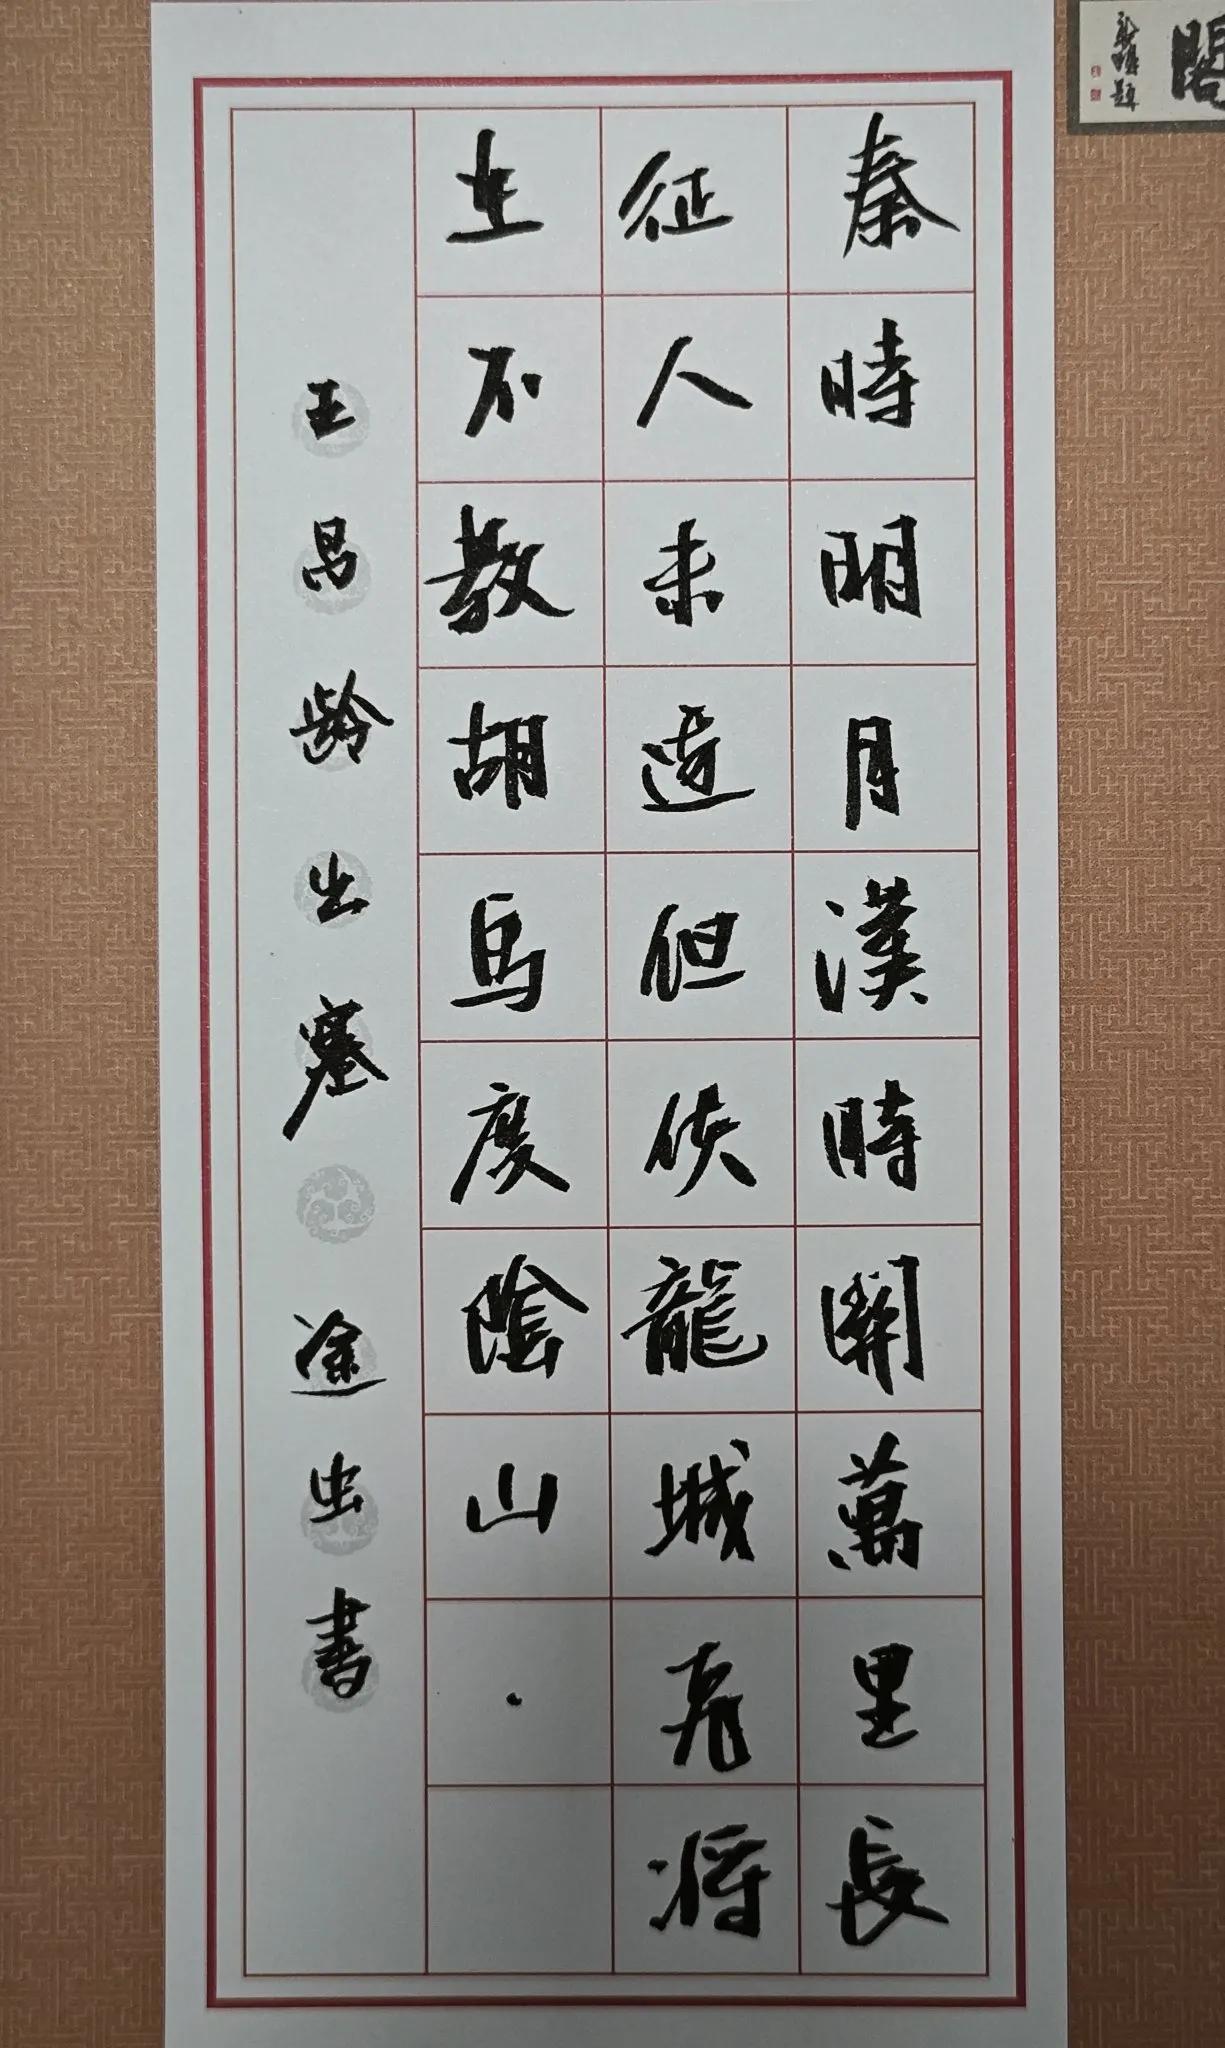 秦時明月漢時關萬里長
征人未還但使龍城飛将
在不教胡馬度陰山
王昌龄出塞 途虫書
閣